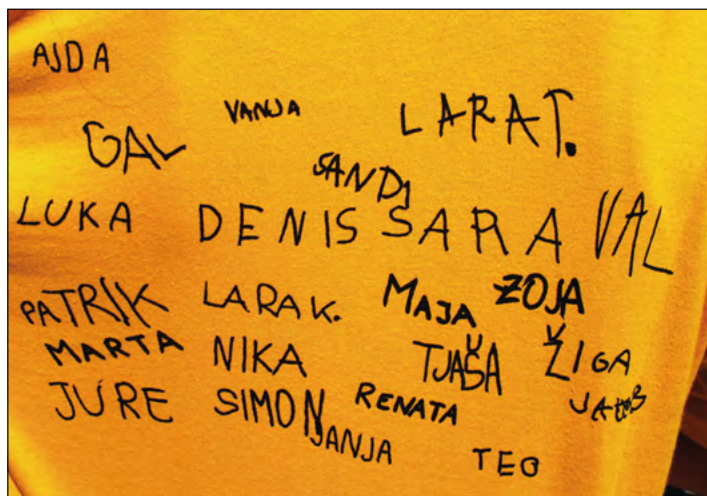 AJDA
VANJA
LARA T.
GAL
SANDI
LUKA DENIS SARA VAL
PATRIK LARA K. MAJA ZOJA
MARTA NIKA TJAŠA ŽIGA
JURE SIMON RENATA
JANJA TEO